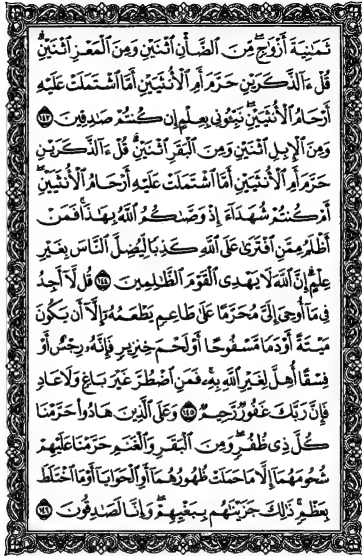 ثَمَٰنِيَةَ أَزْوَٰجٍ ۖ مِّنَ ٱلضَّأْنِ ٱثْنَيْنِ وَمِنَ ٱلْمَعْزِ ٱثْنَيْنِ ۗ
قُلْ ءَآلذَّكَرَيْنِ حَرَّمَ أَمِ ٱلْأُنثَيَيْنِ أَمَّا ٱشْتَمَلَتْ عَلَيْهِ
أَرْحَامُ ٱلْأُنثَيَيْنِ ۖ نَبِّـُٔونِى بِعِلْمٍ إِن كُنتُمْ صَٰدِقِينَ ١٤٣
وَمِنَ ٱلْإِبِلِ ٱثْنَيْنِ وَمِنَ ٱلْبَقَرِ ٱثْنَيْنِ ۗ قُلْ ءَآلذَّكَرَيْنِ
حَرَّمَ أَمِ ٱلْأُنثَيَيْنِ أَمَّا ٱشْتَمَلَتْ عَلَيْهِ أَرْحَامُ ٱلْأُنثَيَيْنِ ۖ
أَمْ كُنتُمْ شُهَدَآءَ إِذْ وَصَّىٰكُمُ ٱللَّهُ بِهَٰذَا ۚ فَمَنْ
أَظْلَمُ مِمَّنِ ٱفْتَرَىٰ عَلَى ٱللَّهِ كَذِبًا لِّيُضِلَّ ٱلنَّاسَ بِغَيْرِ
عِلْمٍ ۗ إِنَّ ٱللَّهَ لَا يَهْدِى ٱلْقَوْمَ ٱلظَّٰلِمِينَ ١٤٤ قُل لَّآ أَجِدُ
فِى مَآ أُوحِىَ إِلَىَّ مُحَرَّمًا عَلَىٰ طَاعِمٍ يَطْعَمُهُۥٓ إِلَّآ أَن يَكُونَ
مَيْتَةً أَوْ دَمًا مَّسْفُوحًا أَوْ لَحْمَ خِنزِيرٍ فَإِنَّهُۥ رِجْسٌ أَوْ
فِسْقًا أُهِلَّ لِغَيْرِ ٱللَّهِ بِهِۦ ۚ فَمَنِ ٱضْطُرَّ غَيْرَ بَاغٍ وَلَا عَادٍ
فَإِنَّ رَبَّكَ غَفُورٌ رَّحِيمٌ ١٤٥ وَعَلَى ٱلَّذِينَ هَادُوا۟ حَرَّمْنَا
كُلَّ ذِى ظُفُرٍ ۖ وَمِنَ ٱلْبَقَرِ وَٱلْغَنَمِ حَرَّمْنَا عَلَيْهِمْ
شُحُومَهُمَآ إِلَّا مَا حَمَلَتْ ظُهُورُهُمَآ أَوِ ٱلْحَوَايَآ أَوْ مَا ٱخْتَلَطَ
بِعَظْمٍ ۚ ذَٰلِكَ جَزَيْنَٰهُم بِبَغْيِهِمْ ۖ وَإِنَّا لَصَٰدِقُونَ ١٤٦